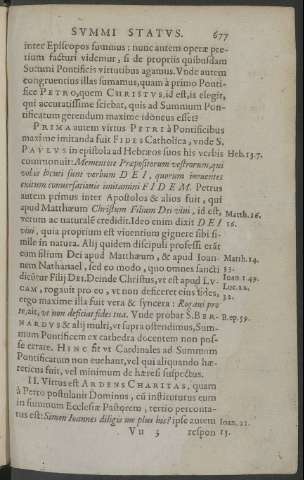 SVMMI STATVS. 677
inter Episcopos sumus: nunc autem operæ pre-
tium facturi videmur, si de propriis quibusdam
Summi Pontificis virtutibus agamus. Vnde autem
congruentius illas sumamus, quam à primo Ponti-
fice PETRO, quem CHRISTVS, id est, is elegit,
qui accuratissime sciebat, quis ad Summum Pon-
tificatum gerendum maxime idoneus esset?
PRIMA autem virtus PETRI à Pontificibus
maxime imitanda fuit FIDES Catholica, vnde S.
PAVLVS in epistola ad Hebræos suos his verbis Heb. 13. 7.
commonuit: Mementote Præpositorum vestrorum, qui
vobis locuti sunt verbum DEI, quorum intuentes
exitum conuersationis imitamini FIDEM. Petrus
autem primus inter Apostolos & alios fuit, qui
apud Matthæum Christum Filium Dei viui, id est, Matth. 16.
verum ac naturalē credidit. Ideo enim dixit DEI 16.
viui, quia proprium est viuentium gignere sibi si-
mile in natura. Alij quidem discipuli professi erāt
eum filium Dei apud Matthæum, & apud Ioan- Matth. 14.
nem Nathanael, sed eo modo, quo omnes sancti 33.
dicūtur Filij Dei. Deinde Christus, vt est apud LV- Ioan. 1. 49.
CAM, rogauit pro eo, vt non deficeret eius fides, Luc. 22.
ergo maxime illa fuit vera & syncera: Rogaui pro 32.
te, ait, vt non deficiat fides tua. Vnde probat S. BER- Ep. 59.
NARDVS & alij multi, vt supra ostendimus, Sum-
mum Pontificem ex cathedra docentem non pos-
se errare. HINC fit vt Cardinales ad Summum
Pontificatum non euehant, vel qui aliquando hæ-
reticus fuit, vel minimum de hæresi suspectus.
II. Virtus est ARDENS CHARITAS, quam
à Petro postulauit Dominus, cū institurus eum
in summum Ecclesiæ Pastorem, tertio perconta-
tus est: Simon Ioannes diligis me plus his? ipse autem Ioan. 21.
Vu 3 respon 15.